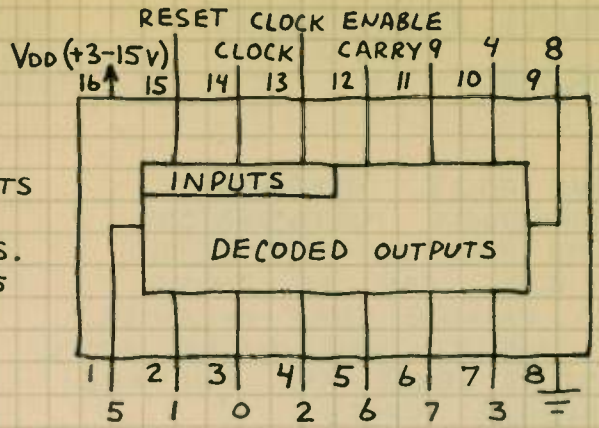 RESET CLOCK ENABLE
VDD (+3-15V) CLOCK CARRY 9 4 8
16 15 14 13 12 11 10 9
TS
INPUTS
S.
DECODED OUTPUTS
S
1 2 3 4 5 6 7 8
5 1 0 2 6 7 3